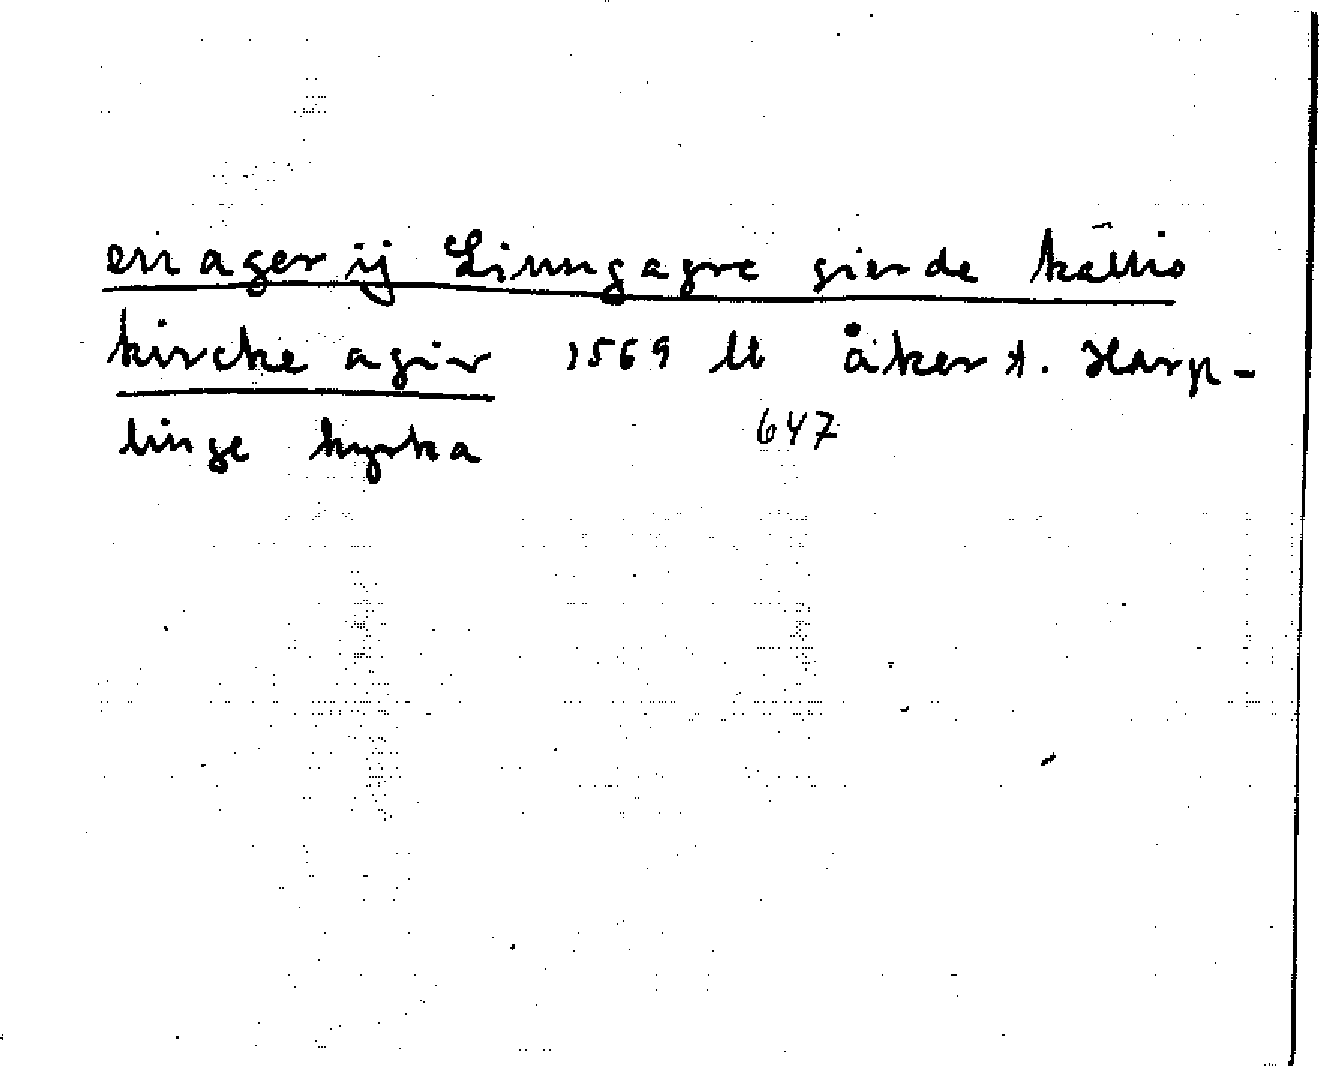 en ager ij Linngagre gierde kallis
kircke agir 1569 lt åker t. Harp-
linge kyrka 647